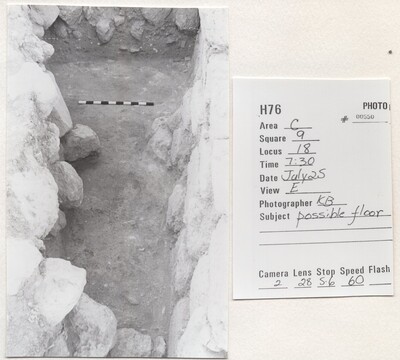 H76 PHOTO
# 00550
Area C
Square 9
Locus 18
Time 7:30
Date July 25
View E
Photographer KB
Subject possible floor
Camera Lens Stop Speed Flash
2 28 5.6 60